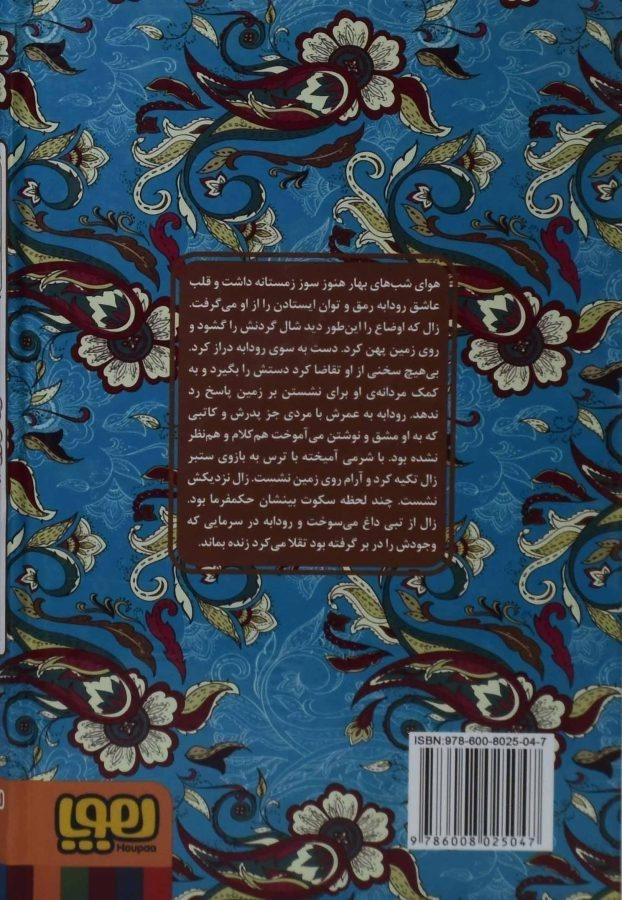 هوای شب‌های بهار هنوز سوز زمستانه داشت و قلب
عاشق رودابه رمق و توان ایستادن را از او می‌گرفت.
زال که اوضاع را این‌طور دید شال گردنش را گشود و
روی زمین پهن کرد. دست به سوی رودابه دراز کرد.
بی‌هیچ سخنی از او تقاضا کرد دستش را بگیرد و به
کمک مردانه‌ی او برای نشستن بر زمین پاسخ رد
ندهد. رودابه به عمرش با مردی جز پدرش و کاتبی
که به او مشق و نوشتن می‌آموخت هم‌کلام و هم‌نظر
نشده بود. با شرمی آمیخته با ترس به بازوی ستبر
زال تکیه کرد و آرام روی زمین نشست. زال نزدیکش
نشست. چند لحظه سکوت بینشان حکمفرما بود.
زال از تبی داغ می‌سوخت و رودابه در سرمایی که
وجودش را در بر گرفته بود تقلا می‌کرد زنده بماند.
ISBN:978-600-8025-04-7
9 786008 025047
هوپا
Houpaa